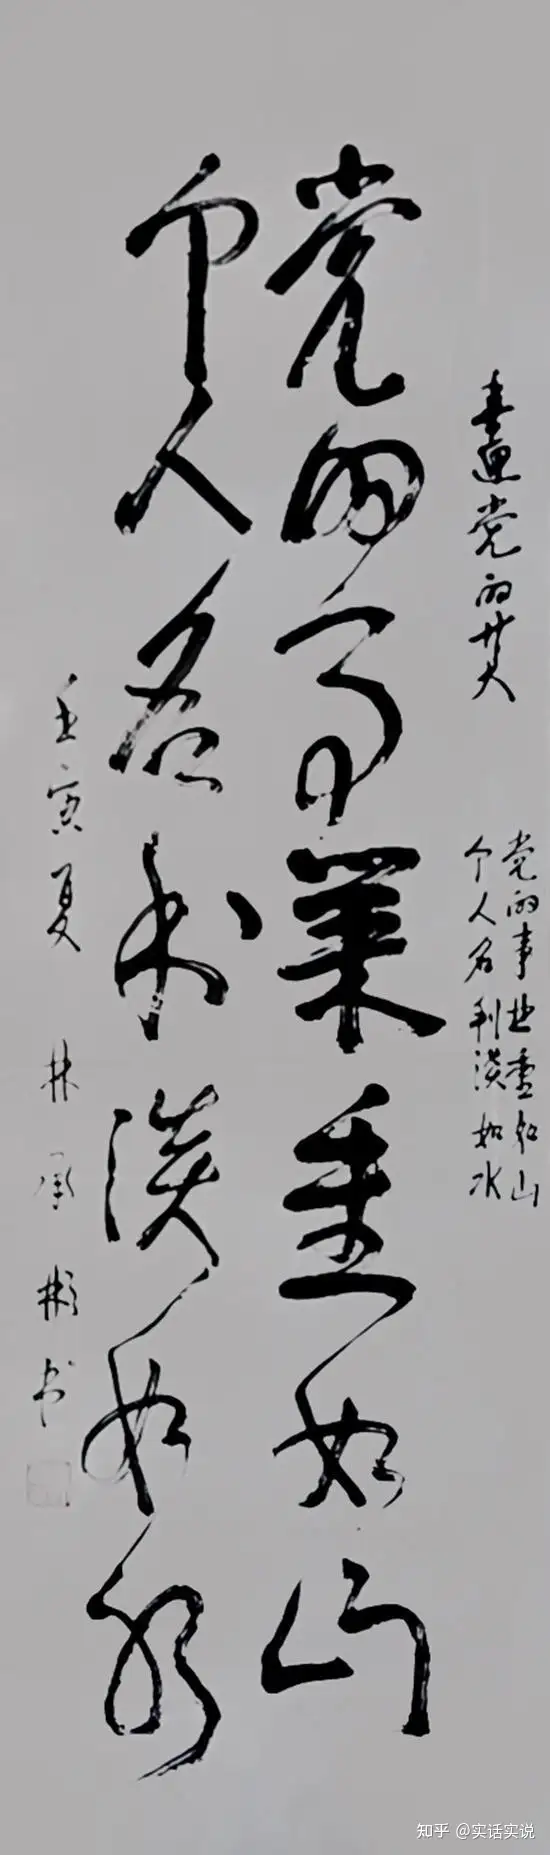 喜迎党的廿大
党的事业重如山
个人名利淡如水
党的事業重如山
个人名利淡如水
壬寅夏 林承彬书
知乎 @实话实说